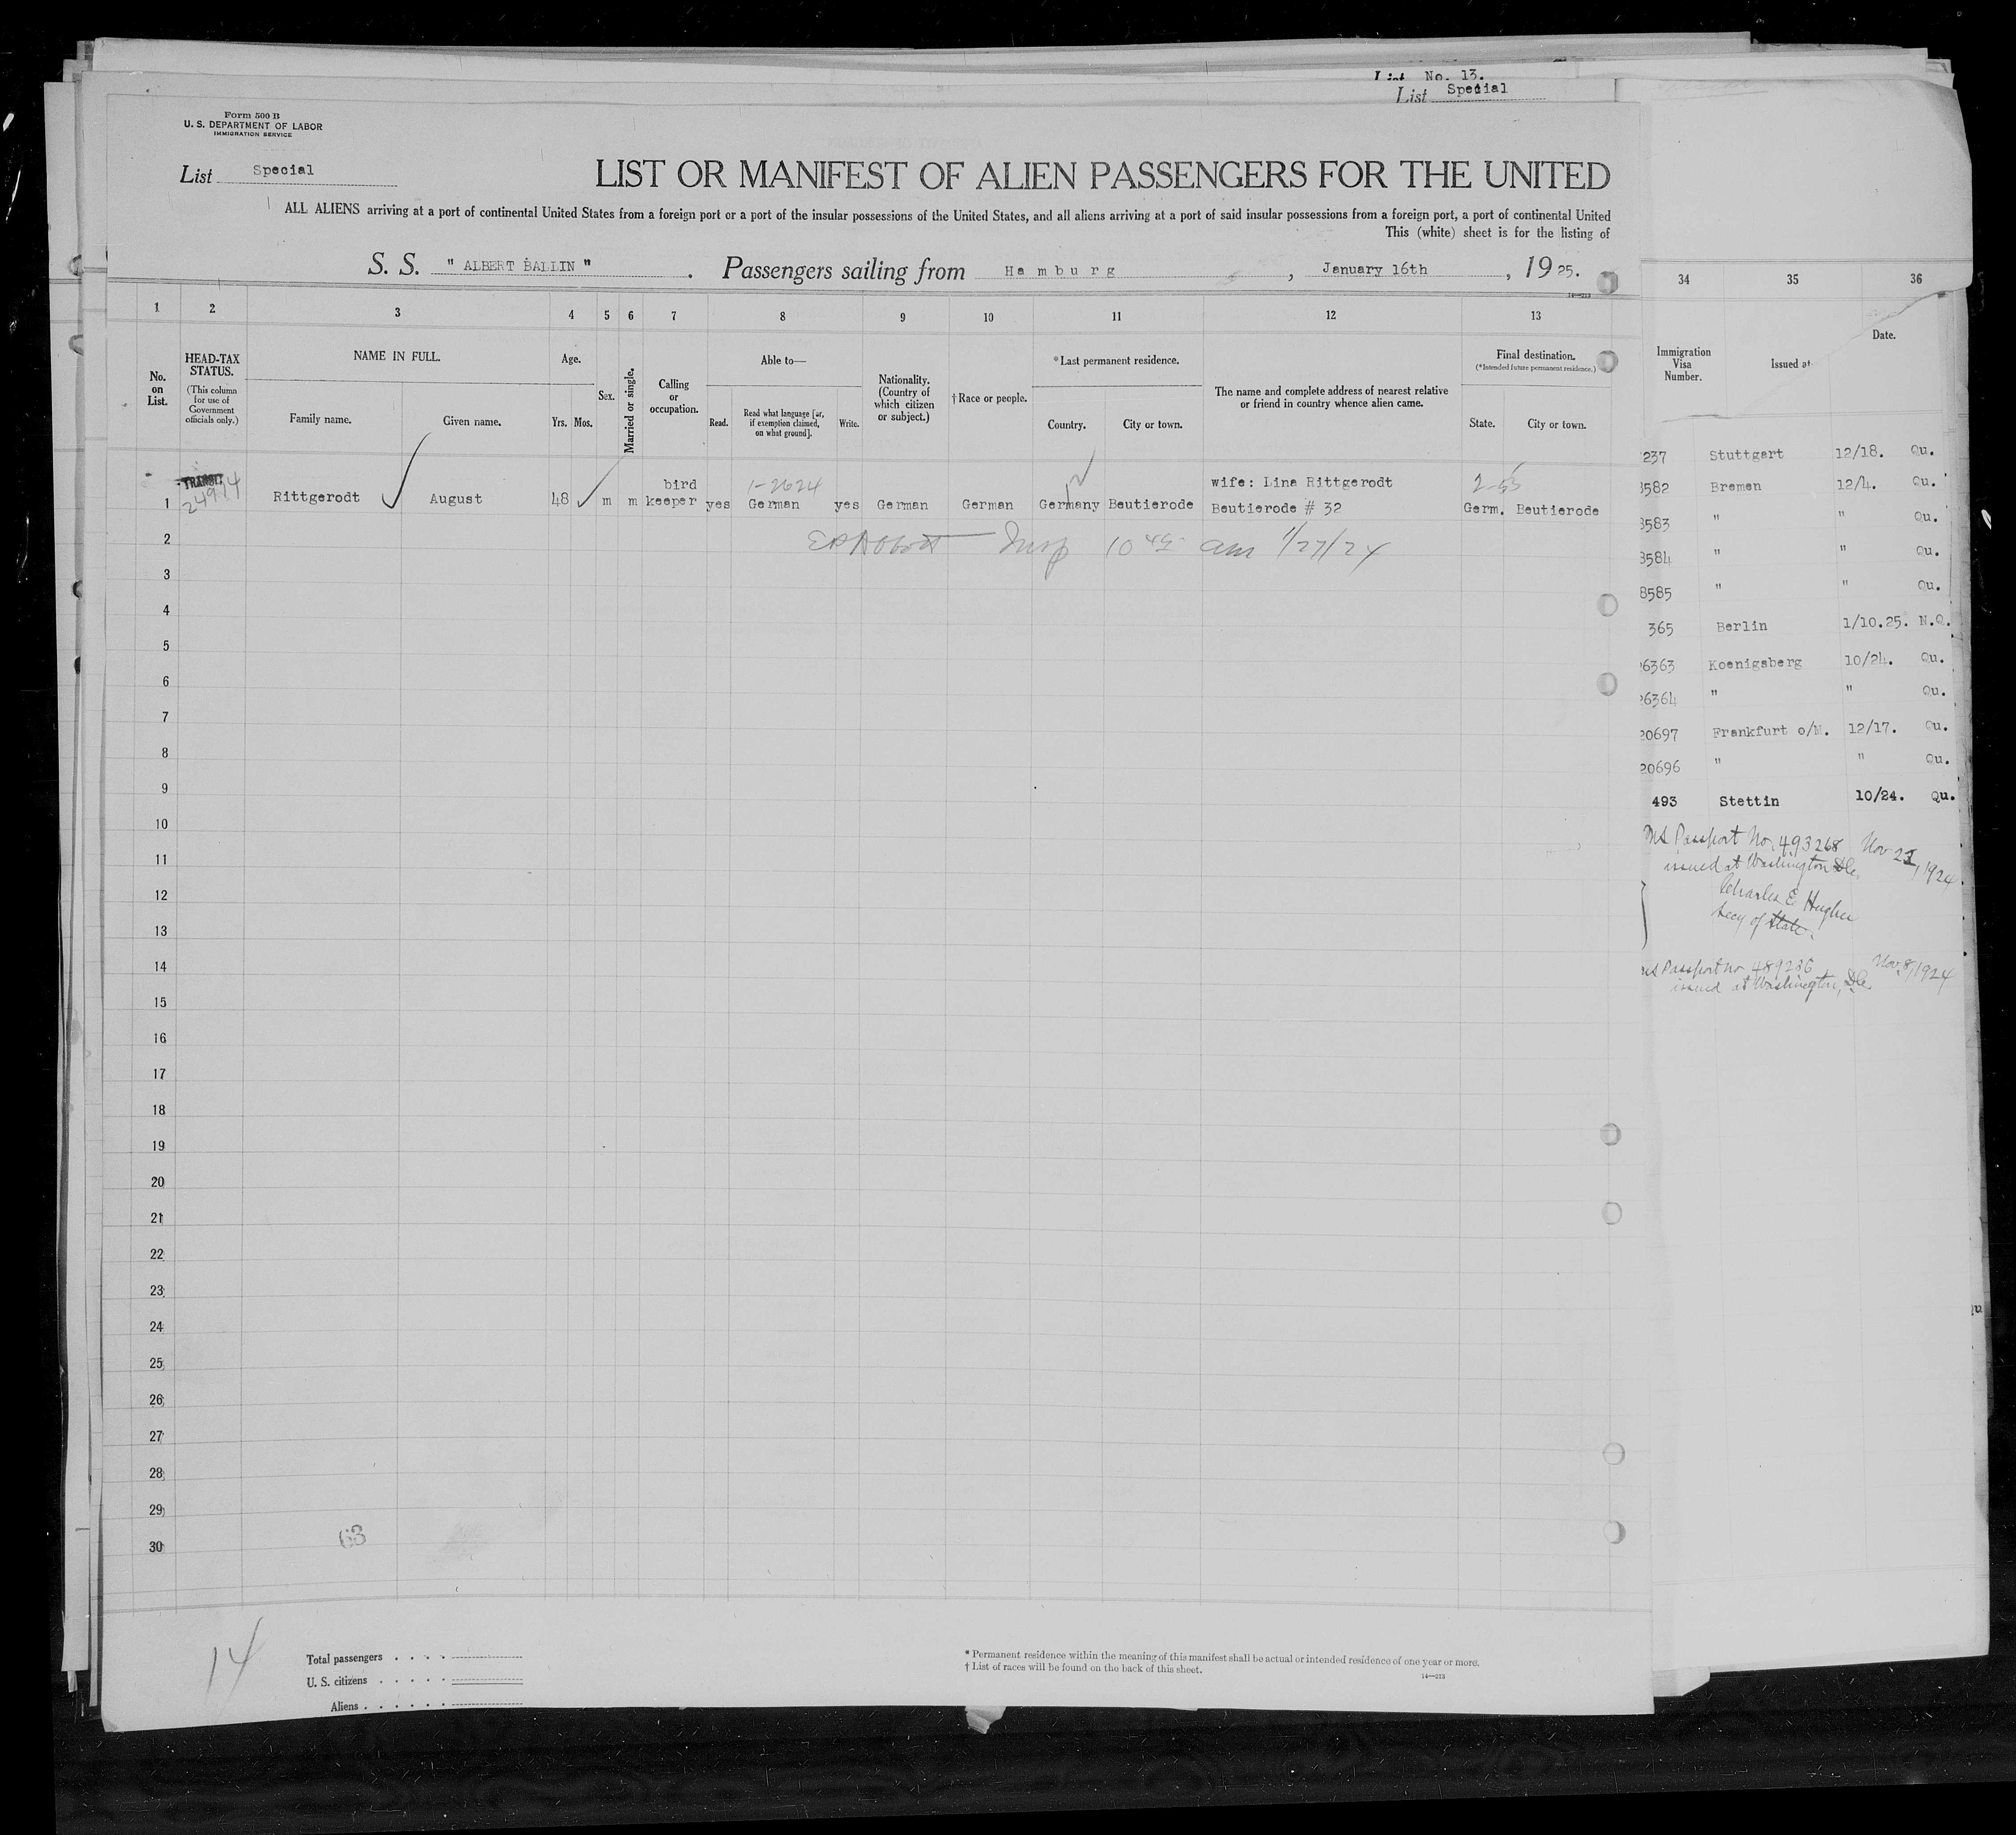 List No. 13.
List Special
Form 500 B
U. S. DEPARTMENT OF LABOR
IMMIGRATION SERVICE
List Special
LIST OR MANIFEST OF ALIEN PASSENGERS FOR THE UNITED
ALL ALIENS arriving at a port of continental United States from a foreign port or a port of the insular possessions of the United States, and all aliens arriving at a port of said insular possessions from a foreign port, a port of continental United
This (white) sheet is for the listing of
S. S. " ALBERT BALLIN " . Passengers sailing from Hamburg , January 16th , 19 25.
1 2 3 4 5 6 7 8 9 10 11 12 13
No. on List.
HEAD-TAX STATUS.
(This column for use of Government officials only.)
NAME IN FULL.
Family name. Given name.
Age.
Yrs. Mos.
Sex.
Married or single.
Calling or occupation.
Able to—
Read. Read what language [or, if exemption claimed, on what ground]. Write.
Nationality. (Country of which citizen or subject.)
† Race or people.
* Last permanent residence.
Country. City or town.
The name and complete address of nearest relative or friend in country whence alien came.
Final destination.
(* Intended future permanent residence.)
State. City or town.
TRANSIT
24914
1 Rittgerodt August 48 m m bird keeper yes 1-2624 German yes German German Germany Beutierode wife: Lina Rittgerodt Beutierode # 32 Germ. Beutierode
2 Insp 10 45 am 1/27/24
3
4
5
6
7
8
9
10
11
12
13
14
15
16
17
18
19
20
21
22
23
24
25
26
27
28
29
30
63
14
Total passengers . . . .
U. S. citizens . . . . .
Aliens . . . . . .
* Permanent residence within the meaning of this manifest shall be actual or intended residence of one year or more.
† List of races will be found on the back of this sheet.
14—213
34 35 36
Immigration Visa Number.
Issued at
Date.
237 Stuttgart 12/18. Qu.
8582 Bremen 12/4. Qu.
8583 " " Qu.
8584 " " Qu.
8585 " " Qu.
365 Berlin 1/10.25. N.Q.
26363 Koenigsberg 10/24. Qu.
26364 " " Qu.
20697 Frankfurt o/M. 12/17. Qu.
20696 " " Qu.
493 Stettin 10/24. Qu.
Passport No. 493268 Nov 23, 1924
issued at Washington DC
Charles E. Hughes
Secy of State.
Passport no 489236 Nov. 8, 1924
issued at Washington, DC